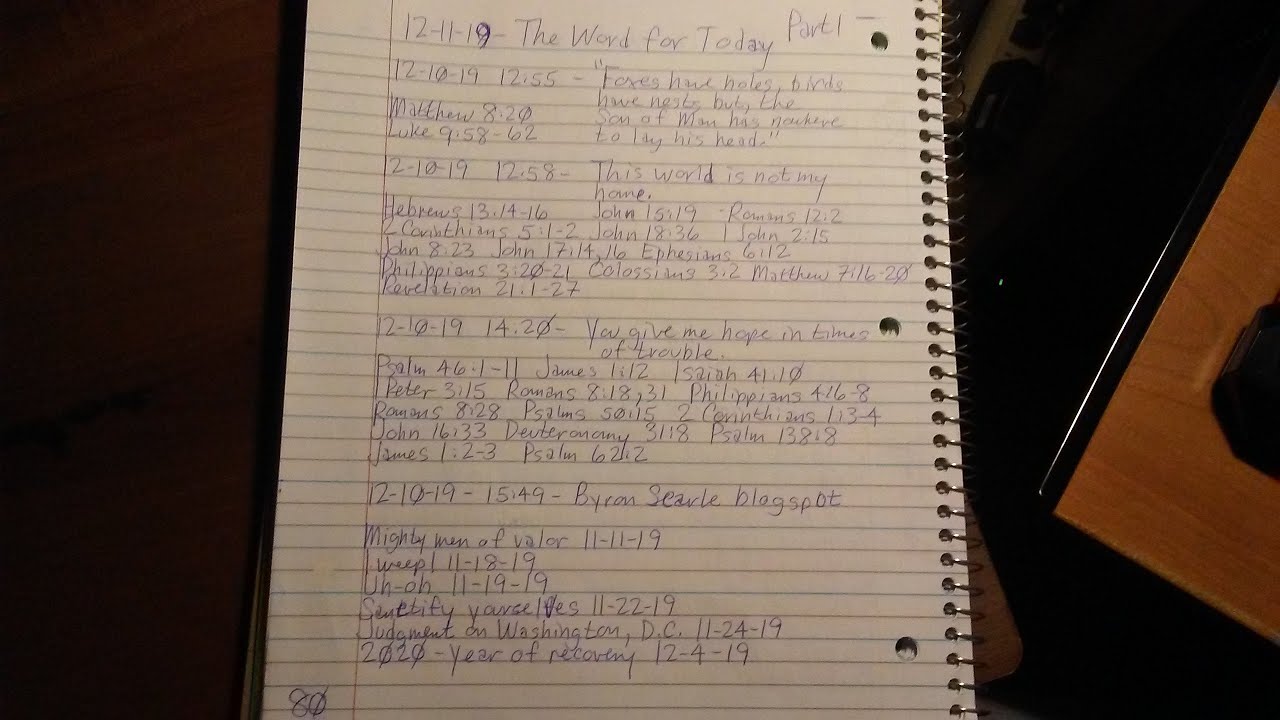 12-11-19 - The Word for Today Part 1
12-10-19 12:55 - "Foxes have holes, birds
have nests but, the
Matthew 8:20 Son of Man has nowhere
Luke 9:58-62 to lay his head."
12-10-19 12:58 - This world is not my
home.
Hebrews 13:14-16 John 15:19 Romans 12:2
2 Corinthians 5:1-2 John 18:36 1 John 2:15
John 8:23 John 17:14,16 Ephesians 6:12
Philippians 3:20-21 Colossians 3:2 Matthew 7:16-20
Revelation 21:1-27
12-10-19 14:20 - You give me hope in times
of trouble.
Psalm 46:1-11 James 1:12 Isaiah 41:10
1 Peter 3:15 Romans 8:18,31 Philippians 4:6-8
Romans 8:28 Psalms 50:15 2 Corinthians 1:3-4
John 16:33 Deuteronomy 31:8 Psalm 138:8
James 1:2-3 Psalm 62:2
12-10-19 - 15:49 - Byron Searle blogspot
Mighty men of valor 11-11-19
I weep! 11-18-19
Uh-oh 11-19-19
Sanctify yourselves 11-22-19
Judgment on Washington, D.C. 11-24-19
2020 - Year of recovery 12-4-19
80